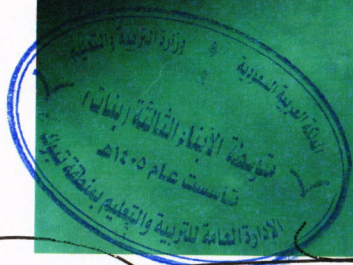 المملكة العربية السعودية * وزارة التربية والتعليم
متوسطة الأبناء الثالثة (بنات)
تأسست عام ١٤٠٥هـ
الإدارة العامة للتربية والتعليم بمنطقة تبوك